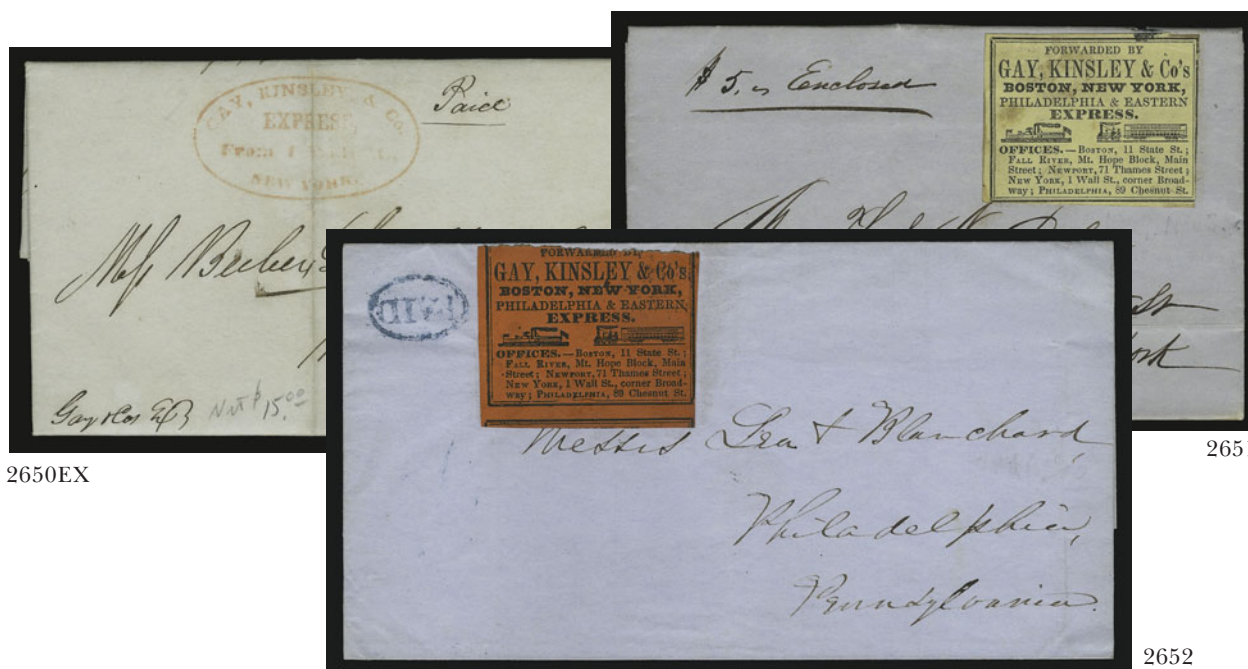 GAY, KINSLEY, & Co.
EXPRESS,
From 1
NEW YORK.
Paid
Gay & Cos
$15.00
2650EX
$ 5. Enclosed
FORWARDED BY
GAY, KINSLEY & Co's
BOSTON, NEW YORK,
PHILADELPHIA & EASTERN
EXPRESS.
OFFICES.—BOSTON, 11 State St.;
FALL RIVER, Mt. Hope Block, Main
Street; NEWPORT, 71 Thames Street;
NEW YORK, 1 Wall St., corner Broad-
way; PHILADELPHIA, 89 Chesnut St.
St
2651
PAID
FORWARDED BY
GAY, KINSLEY & Co's
BOSTON, NEW YORK,
PHILADELPHIA & EASTERN
EXPRESS.
OFFICES.—BOSTON, 11 State St.;
FALL RIVER, Mt. Hope Block, Main
Street; NEWPORT, 71 Thames Street;
NEW YORK, 1 Wall St., corner Broad-
way; PHILADELPHIA, 89 Chesnut St.
Messrs Lea & Blanchard,
Philadelphia,
Pennsylvania.
2652